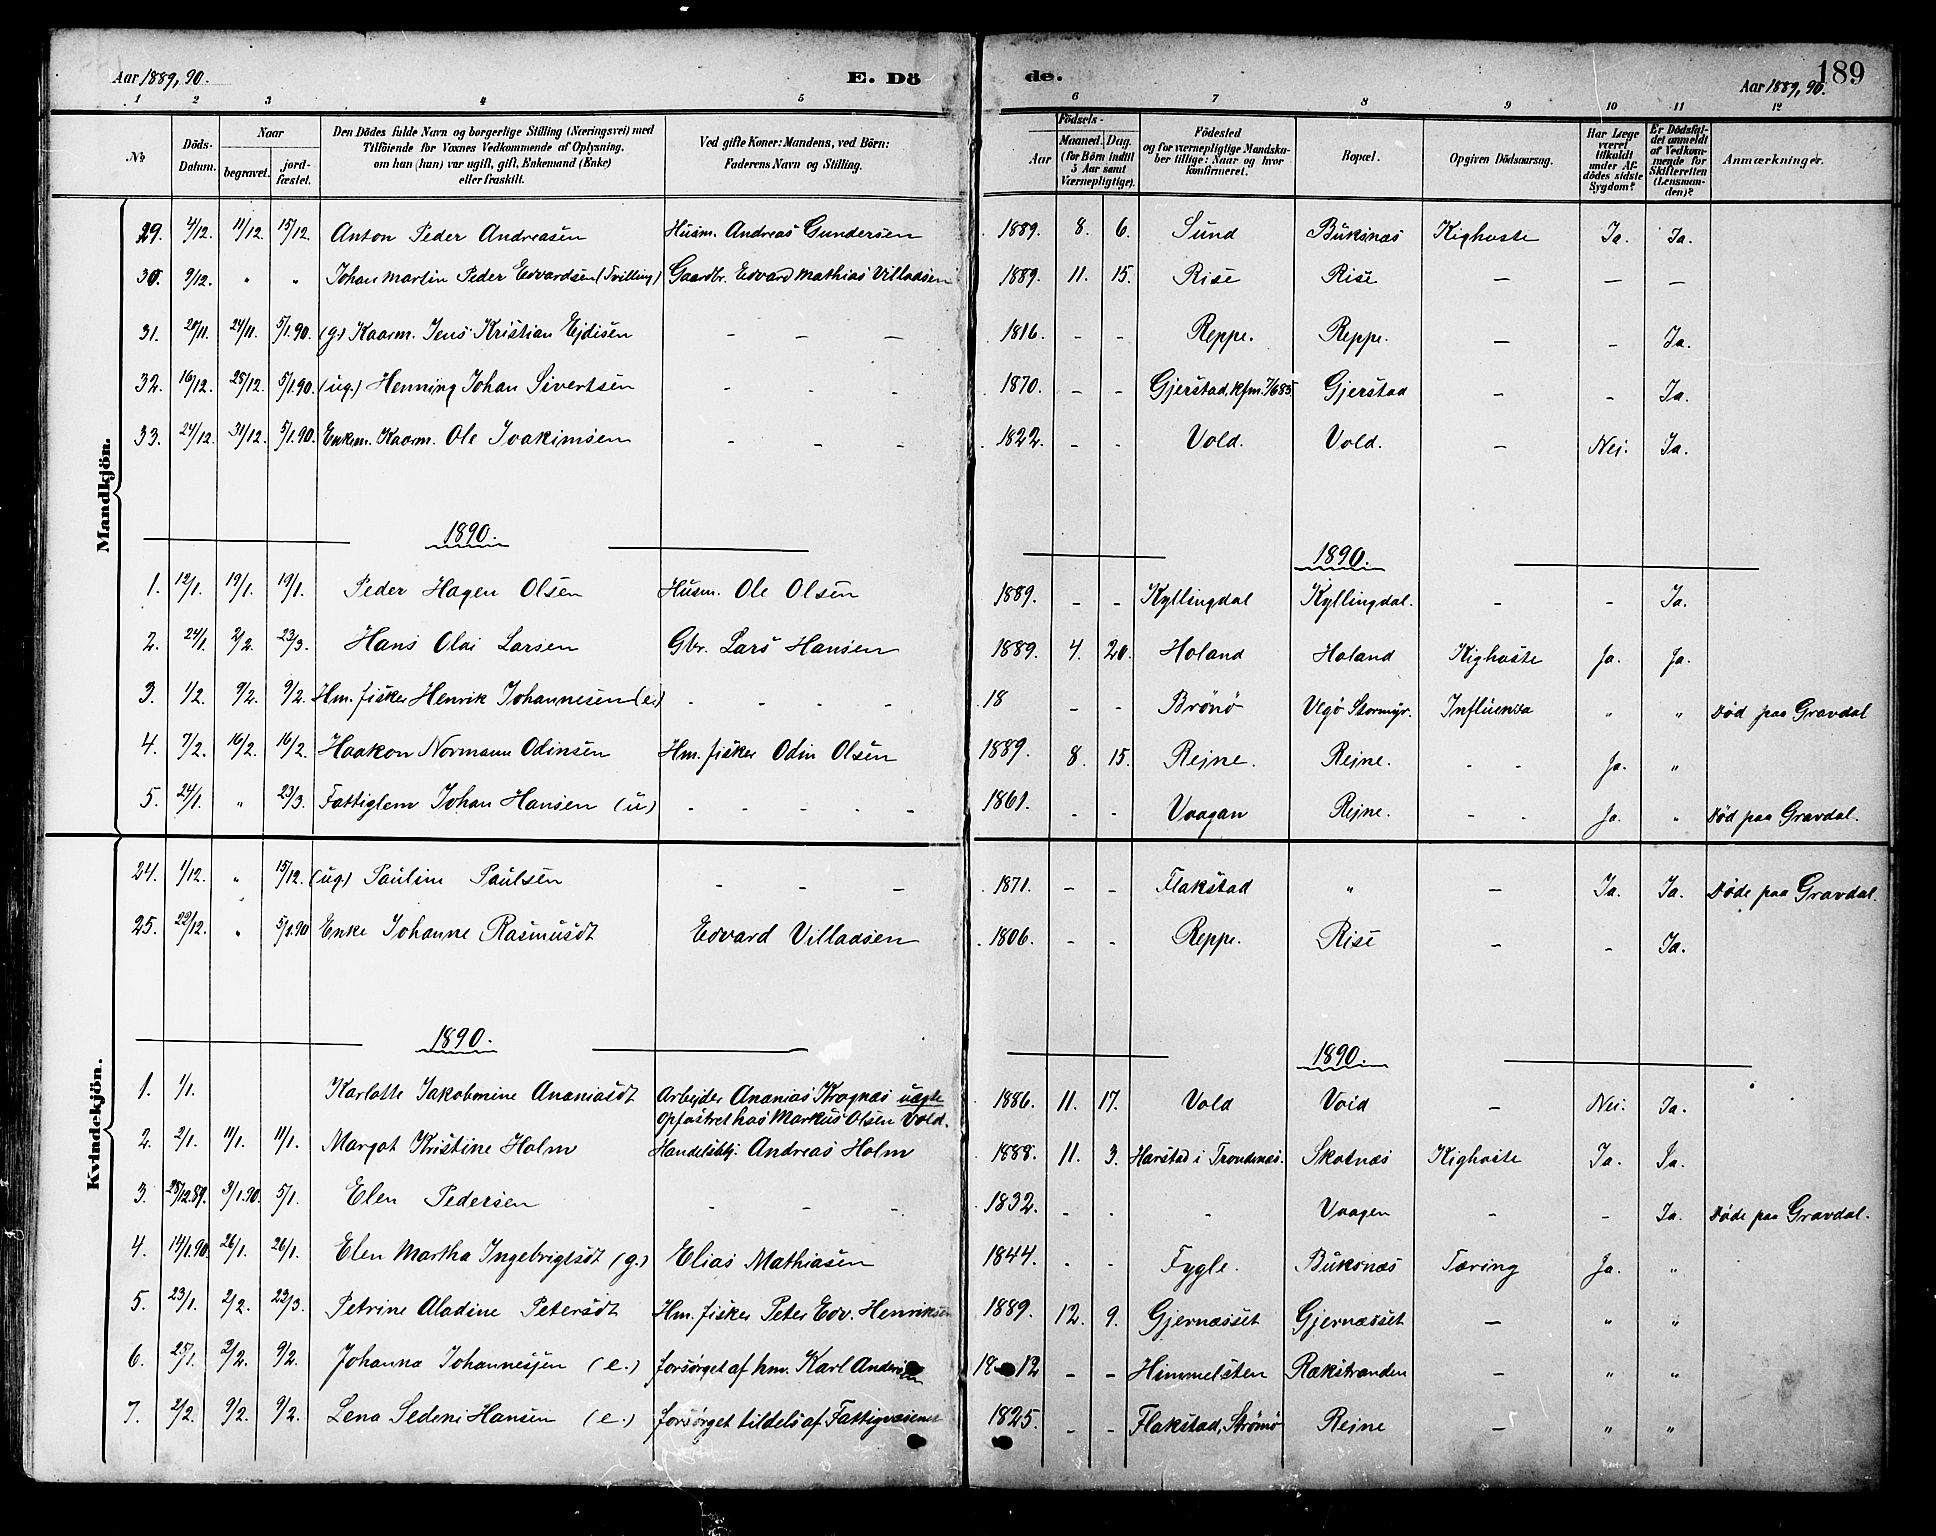 Aar 1889, 90. E. Dö de. Aar 1889, 90. 189
1 2 3 4 5 6 7 8 9 10 11 12
No. Döds-Datum. Naar begravet. jord-fæstet. Den Dödes fulde Navn og borgerlige Stilling (Næringsvei) med Tilföiende for Voxnes Vedkommende af Oplysning, om han (hun) var ugift, gift, Enkemand (Enke) eller fraskilt. Ved gifte Koner: Mandens, ved Börn: Faderens Navn og Stilling. Födsels- Aar Maaned. Dag. (for Börn indtil 5 Aar samt Værnepligtige). Födested og for værnepligtige Mandskaber tillige: Naar og hvor konfirmeret. Bopæl. Opgiven Dödsaarsag. Har Læge været tilkaldt under Afdödes sidste Sygdom? Er Dödsfaldet anmeldt af Vedkommende for Skifteretten (Lensmanden)? Anmærkninger.
Mandkjön.
29. 4/12. 11/12. 15/12. Anton Peder Andreasen Husm. Andreas Gundersen 1889. 8. 6. Sund Buksnæs Kighoste Ja. Ja.
30. 9/12. " " Johan Martin Peder Edvardsen (Tvilling) Gaardbr. Edvard Mathias Villadsen 1889. 11. 15. Rise Rise – – –
31. 20/11. 24/11. 5/1.90. (g.) Kaarm. Jens Kristian Ejdisen – – – 1816. – – Reppe. Reppe. – – Ja.
32. 16/12. 28/12. 5/1.90. (ug.) Henning Johan Sivertsen – – – 1870. – – Gjerstad, kfm. 7/6 85. Gjerstad – – Ja.
33. 24/12. 31/12. 5/1.90. Enkm. Kaarm. Ole Joakimsen – – – 1822. – – Vold. Vold. – Nei. Ja.
1890. 1890.
1. 12/1. 19/1. 19/1. Peder Hagen Olsen Husm. Ole Olsen 1889. – – Kyllingdal Kyllingdal. – – Ja.
2. 24/1. 2/2. 23/3. Hans Olai Larsen Gbr. Lars Hansen 1889. 4. 20. Holand Holand Kighoste Ja. Ja.
3. 1/2. 9/2. 9/2. Hm. fisker Henrik Johannesen (e) - - - - 18 – – Brönö Vegö Stormyr. Influenza " " Død paa Gravdal
4. 7/2. 16/2. 16/2. Haakon Normann Odinsen Hm. fisker Odin Olsen 1889. 8. 15. Rejne. Rejne. - - Ja. "
5. 24/1. " 23/3. Fattiglem Johan Hansen (u) - - - - - 1861. - - Vaagan Rejne. - - Ja. " Død paa Gravdal.
Kvindekjön.
24. 1/12. " 15/12. (ug.) Pauline Paulsen – – – 1871. – – Flakstad " – Ja. Ja. Døde paa Gravdal.
25. 22/12. " 5/1.90 Enke Johanne Rasmusdt Edvard Villadsen 1806. – – Reppe. Rise – – Ja.
1890. 1890.
1. 1/1. Karlotte Jakobmine Ananiasdt Arbejder Ananias Kragnæs uægte
Opfostret hos Markus Olsen Vold. 1886. 11. 17. Vold Vold – Nei. Ja.
2. 2/1. 11/1. 11/1. Margot Kristine Holm Handelsbtj. Andreas Holm 1888. 11. 3. Harstad i Trondenæs. Skotnæs Kighoste Ja. Ja.
3. 28/12.89. 3/1.90. 5/1. Elen Pedersen - - - 1832. - - - Vaagen – – Ja. Døde paa Gravdal.
4. 14/1.90. 26/1. 26/1. Elen Martha Ingebrigtsdt (g.) Elias Mathiasen 1844. - - Fygle. Buksnæs Tæring Ja. "
5. 23/1. 2/2. 23/3. Petrine Aladine Petersdt Hm. fisker Peter Edv. Henriksen 1889. 12. 9. Gjernæsset Gjernæsset – " "
6. 25/1. 2/2. 9/2. Johanna Johannesen (e.) forsørget af hm. Karl Andersen 1812 – – Himmelsten Rækstranden – " "
7. 2/2. 9/2. 9/2. Lena Sedeni Hansen (e.) forsørget tildels af Fattigvæsenet 1825. – – Flakstad, Strömö Rejne – " "